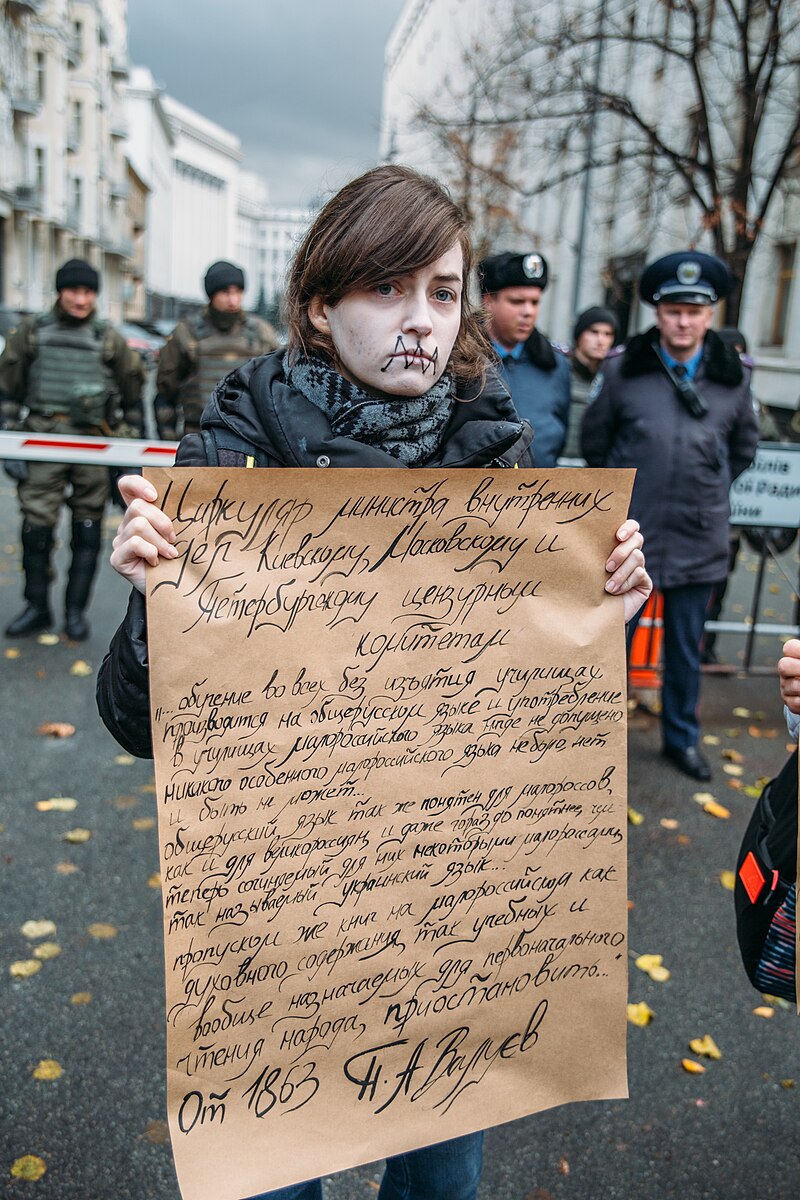 Циркуляр министра внутренних
дел Киевскому, Московскому и
Петербургскому цензурным
комитетам
"...обучение во всех без изъятия училищах
производится на общерусском языке и употребление
в училищах малороссийского языка нигде не допущено
никакого особенного малороссийского языка не было, нет
и быть не может...
общерусский язык так же понятен для малороссов,
как и для великороссиян, и даже гораздо понятнее, чем
теперь сочиняемый для них некоторыми малороссами,
так называемый украинский язык...
пропуском же книг на малороссийском как
духовного содержания, так учебных и
вообще назначаемых для первоначального
чтения народа, приостановить..."
От 1863 П.А Валуев